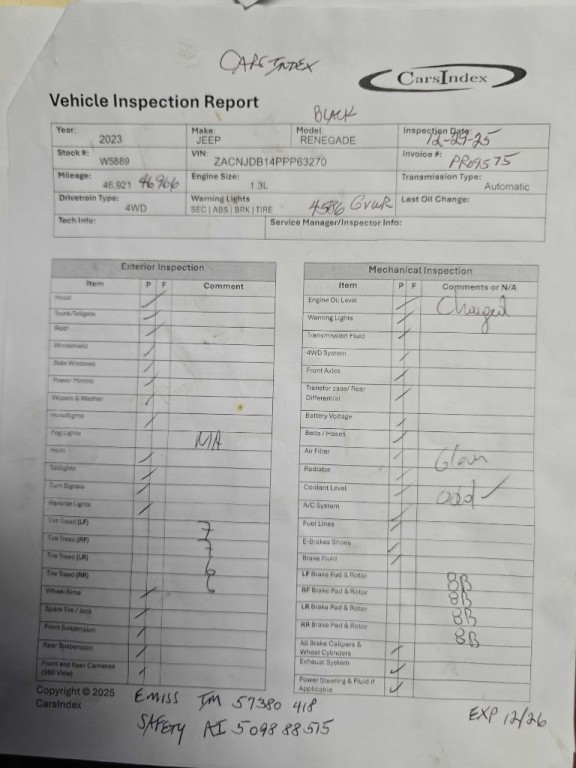 CARS INDEX
CarsIndex
Vehicle Inspection Report
BLACK
Year: 2023 Make: JEEP Model: RENEGADE Inspection Date: 12-29-25
Stock #: W5889 VIN: ZACNJDB14PPP63270 Invoice #: PR09575
Mileage: 46,921 46966 Engine Size: 1.3L Transmission Type: Automatic
Drivetrain Type: 4WD Warning Lights SEC | ABS | BRK | TIRE 4586 GVWR Last Oil Change:
Tech Info: Service Manager/Inspector Info:
Exterior Inspection
Item P F Comment
Hood
Trunk/Tailgate
Roof
Windshield
Side Windows
Power Mirrors
Wipers & Washer
Headlights
Fog Lights NA
Horn
Taillights
Turn Signals
Reverse Lights
Tire Tread (LF) 7
Tire Tread (RF) 7
Tire Tread (LR) 6
Tire Tread (RR) 6
Wheel Rims
Spare Tire / Jack
Front Suspension
Rear Suspension
Front and Rear Cameras
(360 View)
Mechanical Inspection
Item P F Comments or N/A
Engine Oil Level Changed
Warning Lights
Transmission Fluid
4WD System
Front Axles
Transfer case/ Rear
Differential
Battery Voltage
Belts / Hoses
Air Filter Clean
Radiator
Coolant Level add ✓
A/C System
Fuel Lines
E-Brakes Shoes
Brake Fluid
LF Brake Pad & Rotor 8B
RF Brake Pad & Rotor 8B
LR Brake Pad & Rotor 8B
RR Brake Pad & Rotor 8B
All Brake Calipers &
Wheel Cylinders
Exhaust System
Power Steering & Fluid if
Applicable
Copyright © 2025
CarsIndex
EMISS IM 57380 418
SAFETY AI 5098 88515
EXP 12/26